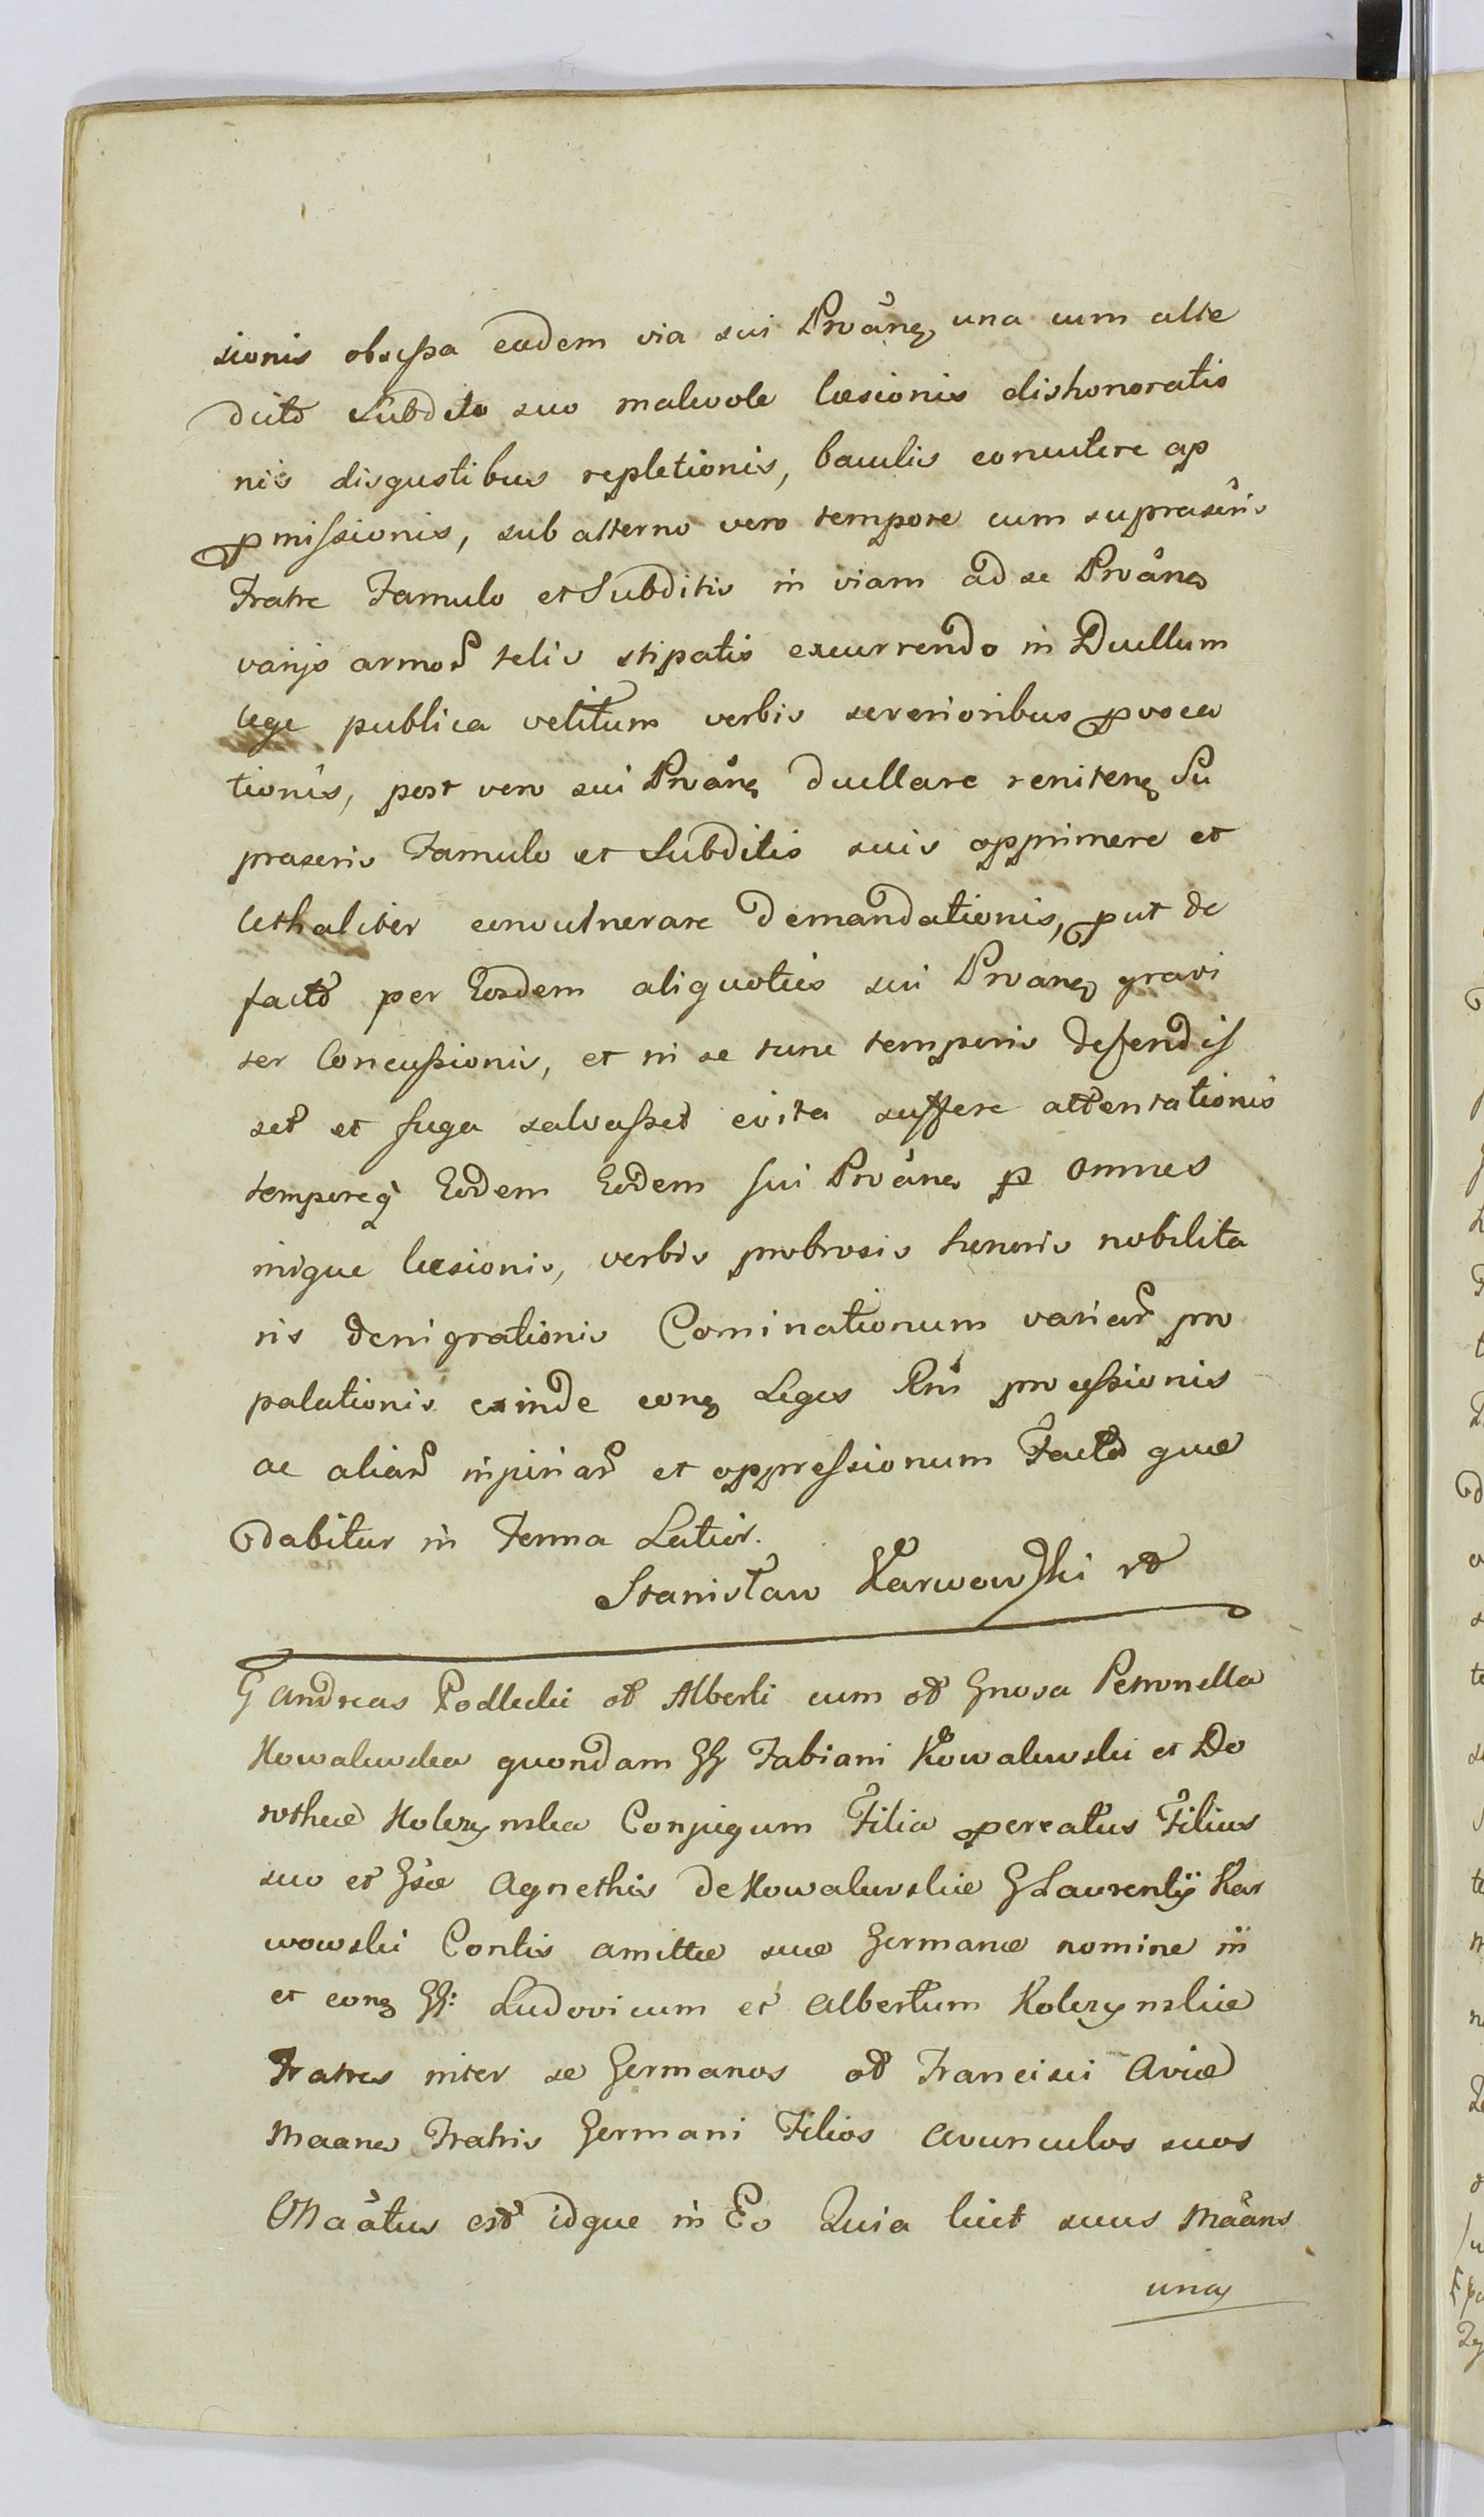 sionis obsessa eadem via sui Provãnꝫ una cum alte
dicto Subdito suo malevole læsionis dishonoratio
nis disgustibus repletionis, baculis concutere ap
pmissionis, sub alterno vero tempore cum suprascris
Fratre Famulo et Subditis in viam ad se Provãnꝫ
varijs armoꝝ telis stipatis excurrendo in Duellum
lege publica vetitum verbis severioribus pvoca
tionis, post vero sui Provãnꝫ duellare renitenꝫ Su
prascris Famulo et Subditis suis opprimere et
lethaliter convulnerare demandationis, put de
facto per Eosdem aliquoties sui Provanꝫ gravi
ter Concussionis, et ni se tunc temporis defendis
set et fuga salvasset evita suffere attentationis
temporeq̃ Eodem Eodem sui Provãnꝫ p omnes
inique læsionis, verbis probrosis honoris nobilita
ris denigrationis Cominationum variaꝝ pro
palationis exinde conꝫ Leges Rni processionis
ac aliaꝝ injuriaꝝ et oppressionum Facto quæ
dabitur in Termo Latior.
Stanisław Karwowski
G Andreas Podlecki oł Alberti cum oł Gnosa Petronella
Kowalewska quondam GG Fabiani Kowalewski et Do
rothea Kolczynska Conjugum Filia pcreatus Filius
suo et Gsæ Agnethis de Kowalewskie G Laurentij Kar
wowski Contis amittæ suæ Germanæ nomine iñ
et conꝫ GG: Ludovicum et Albertum Kolczynskie
Fratres inter se Germanos oł Francisci Aviæ
Maanꝫ Fratris Germani Filios avunculos suos
Maãtus est idque in Eo Quia licet suus Maãns
una